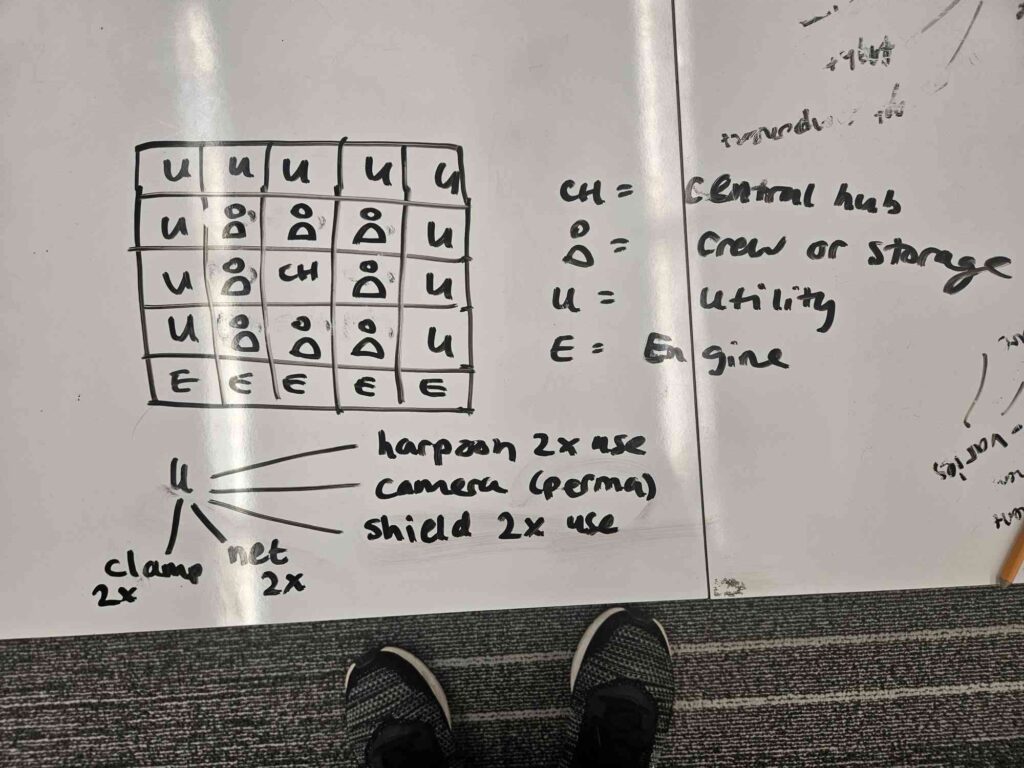 U U U U U
U U
U CH U
U U
E E E E E
CH = central hub
= crew or storage
U = utility
E = Engine
U
harpoon 2x use
camera (perma)
shield 2x use
clamp
2x
net
2x
varies